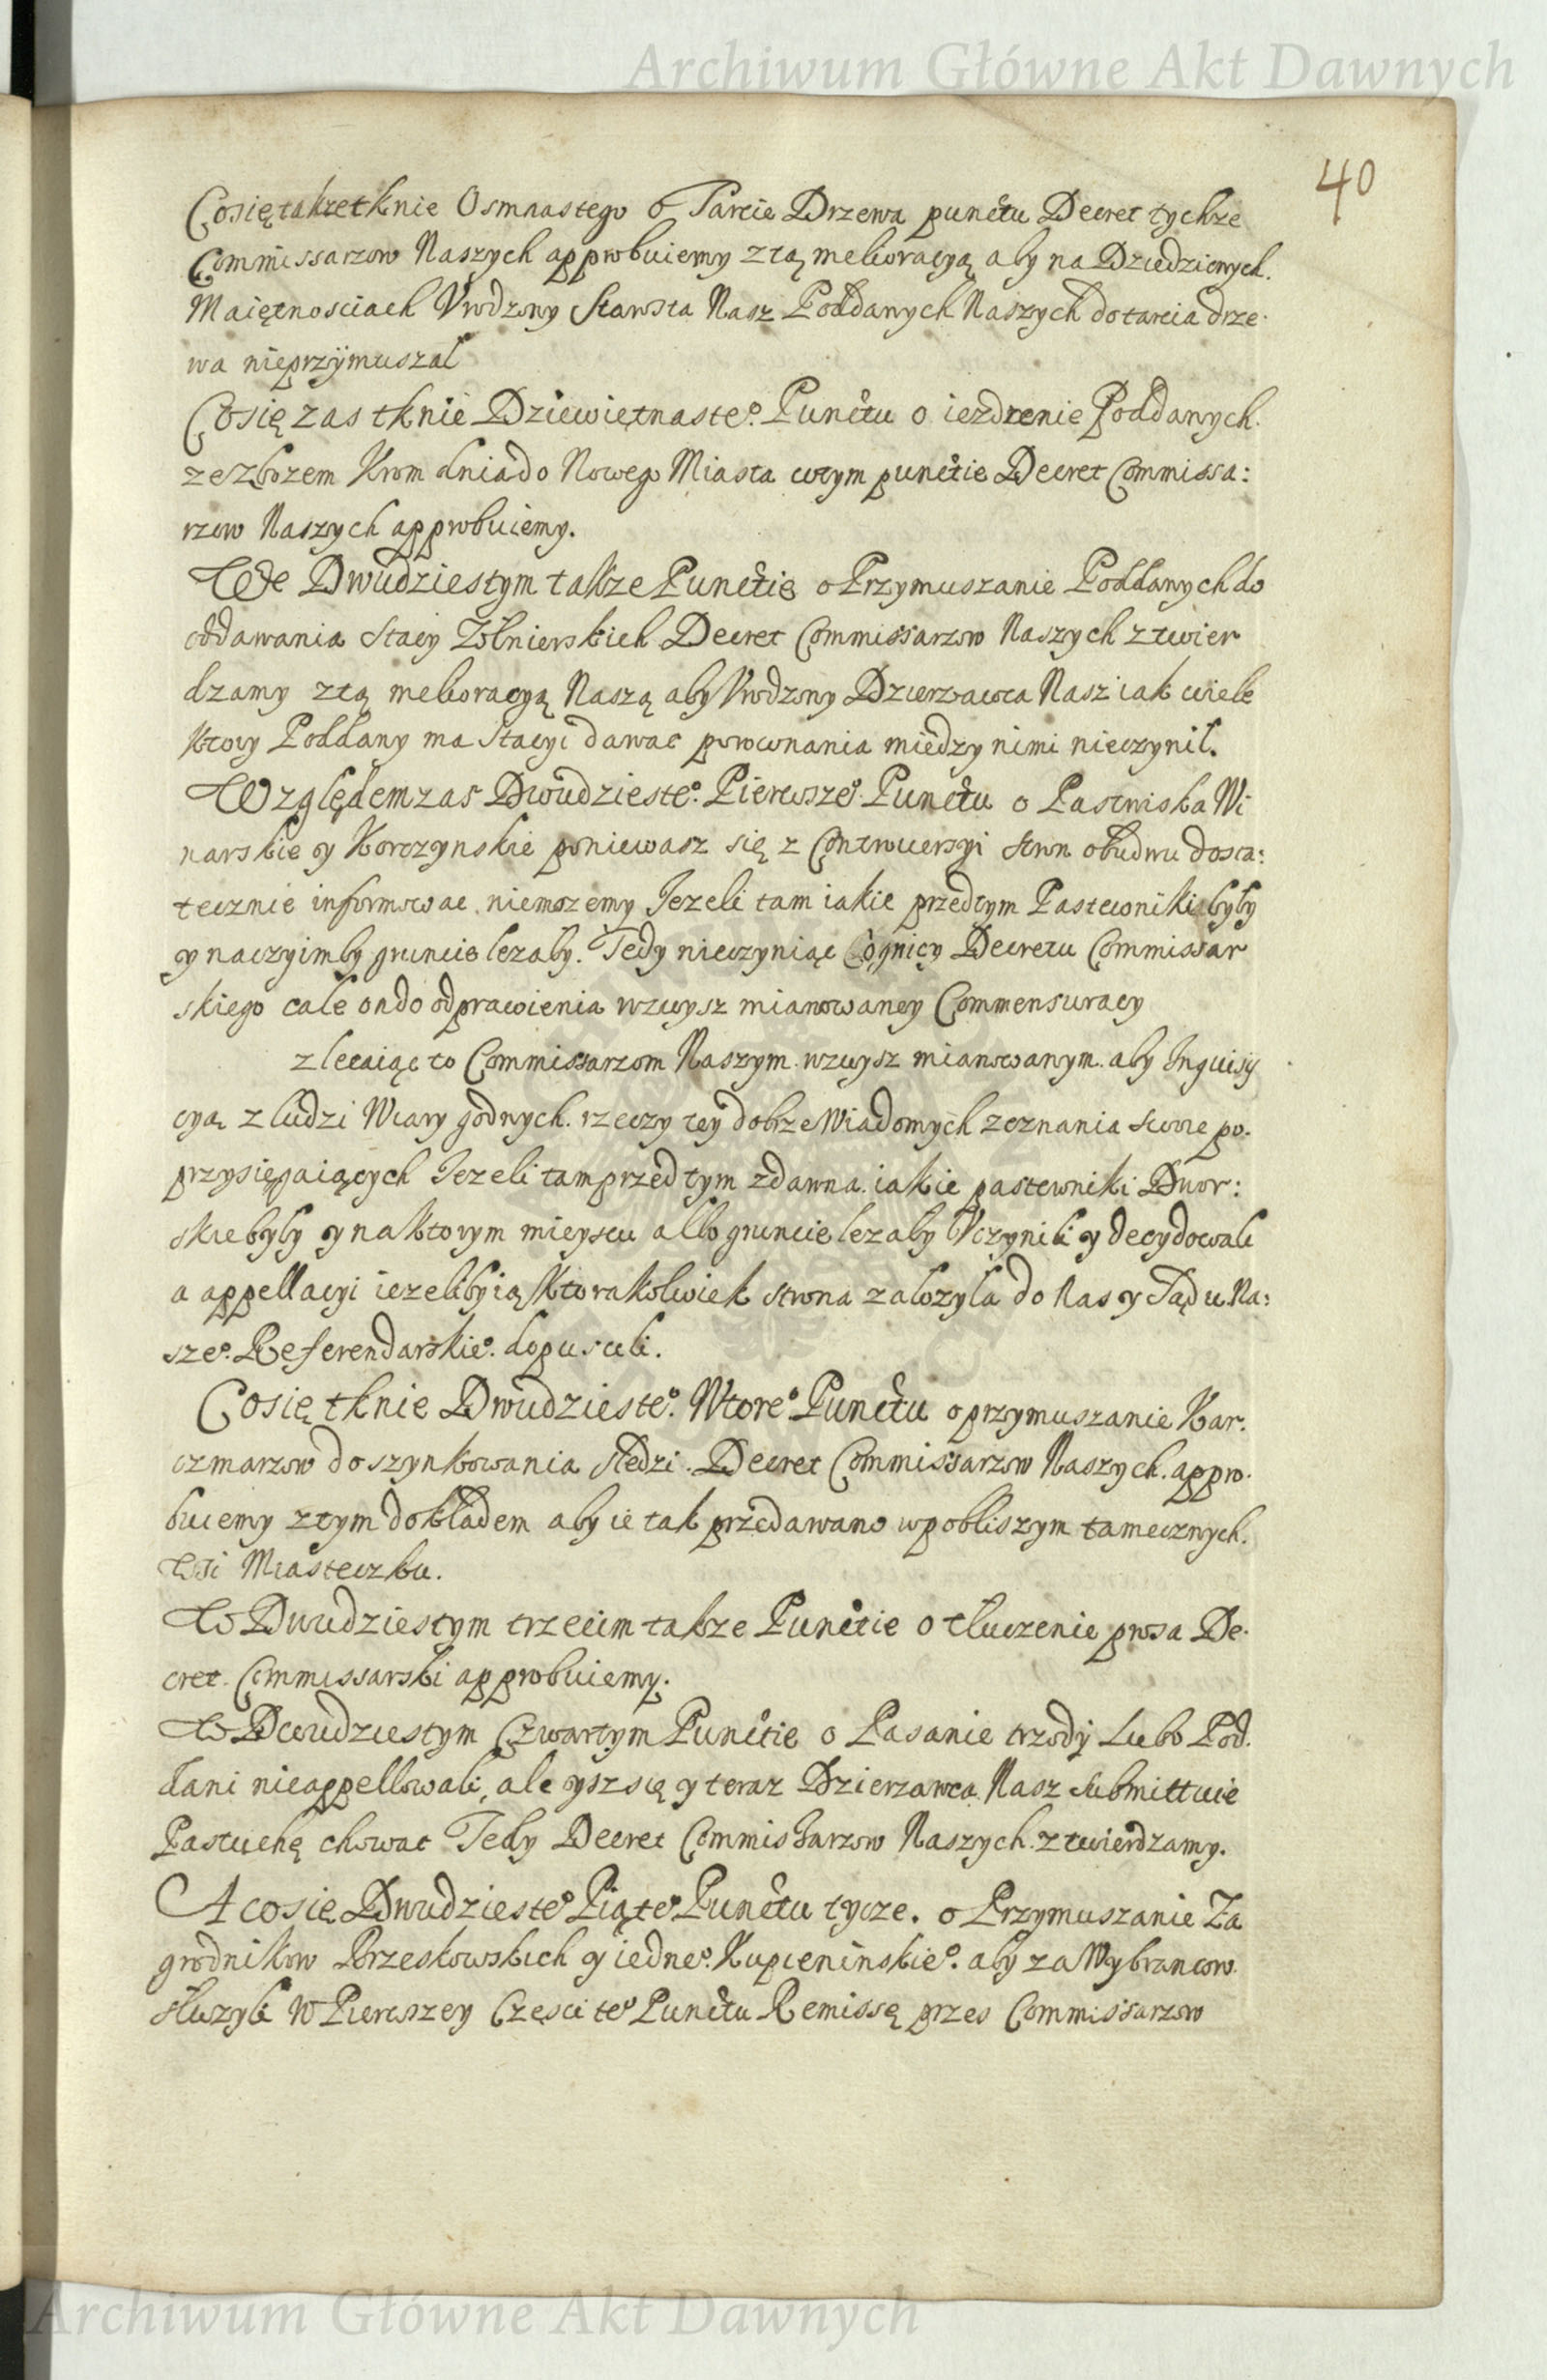 Archiwum Główne Akt Dawnych
40
Co się takze tknie Osmnastego o Tarcie Drzewa punctu Decret tychze
Commissarzow Naszych approbuiemy z tą melioracyą aby na Dziedzicznych.
Maiętnosciach Vrodzony Starosta Nasz Poddanych Naszych do tarcia drze-
wa nieprzÿmuszal
Co się zas tknie Dziewiętnasteº. Punctu o iezdzenie Poddanych.
ze zbozem Krom dnia do Nowego Miasta w tym punctie Decret Commissa:
rzow Naszych approbuiemy.
We Dwudziestym takze Punctie o Przymuszanie Poddanych do
oddawania Stacy Zolnierskich Decret Commissarzow Naszych ztwier
dzamy z tą melioracyą Naszą aby Vrodzony Dzierzawca Nasz iak wiele
ktory Poddany ma Stacyi dawac porownania miedzy nimi nieczynil.
Względem zas Dwudziesteº. Pierwszeº. Punctu o Pastwiska Wi
narskie y Korczynskie poniewasz się z Controuersyi stron obudwu dosta:
tecznie informowac niemozemy Jezeli tam iakie przedtym Pastewniki byly
y na czyimby gruncie lezaly. Tedy nieczyniąc Lognicy Decretu Commissar
skiego cale on do odprawienia wzwysz mianowaney Commensuracy
zlecaiąc to Commissarzom Naszym wzwysz mianowanym. aby Inquisÿ
cyą z ludzi Wiary godnych. rzeczy tey dobrze Wiadomych zeznania swoie po-
przysięgaiących Jezeli tam przed tym zdawna iakie pastewniki Dwor:
skie byly y na ktorym mieyscu albo gruncie lezaly Vczynili y decydowali
a appellacyi iezeliby ią ktorakolwiek strona zalozyla do Nas y Sądu Na:
szeº. Referendarskieº. dopuscili.
Co się tknie Dwudziesteº. Wtoreº Punctu o przymuszanie Kar-
czmarzow do szynkowania sledzi. Decret Commissarzow Naszych. appro-
buiemy z tym dokladem aby ie tak przedawano w pobliszym tamecznych.
Wsi Miasteczku.
W Dwudziestym trzecim takze Punctie o tluczenie prosa De-
cret Commissarski approbuiemy.
W Dwudziestym Czwartym Punctie o Pasanie trzodÿ Lubo Pod-
dani nieappellowali, ale ysz się y teraz Dzierzawca Nasz submittuie
Pastuchę chowac Tedy Decret Commissarzow Naszych ztwierdzamy.
A co się Dwudziesteº Piąteº Punctu tycze. o Przymuszanie Za
grodnikow Brzeskowskich y iedneº. Kupieninskieº. aby za Wybrancow
sluzyli W Pierwszey Częsci teº Punctu Remissę przes Commissarzow
Archiwum Główne Akt Dawnych